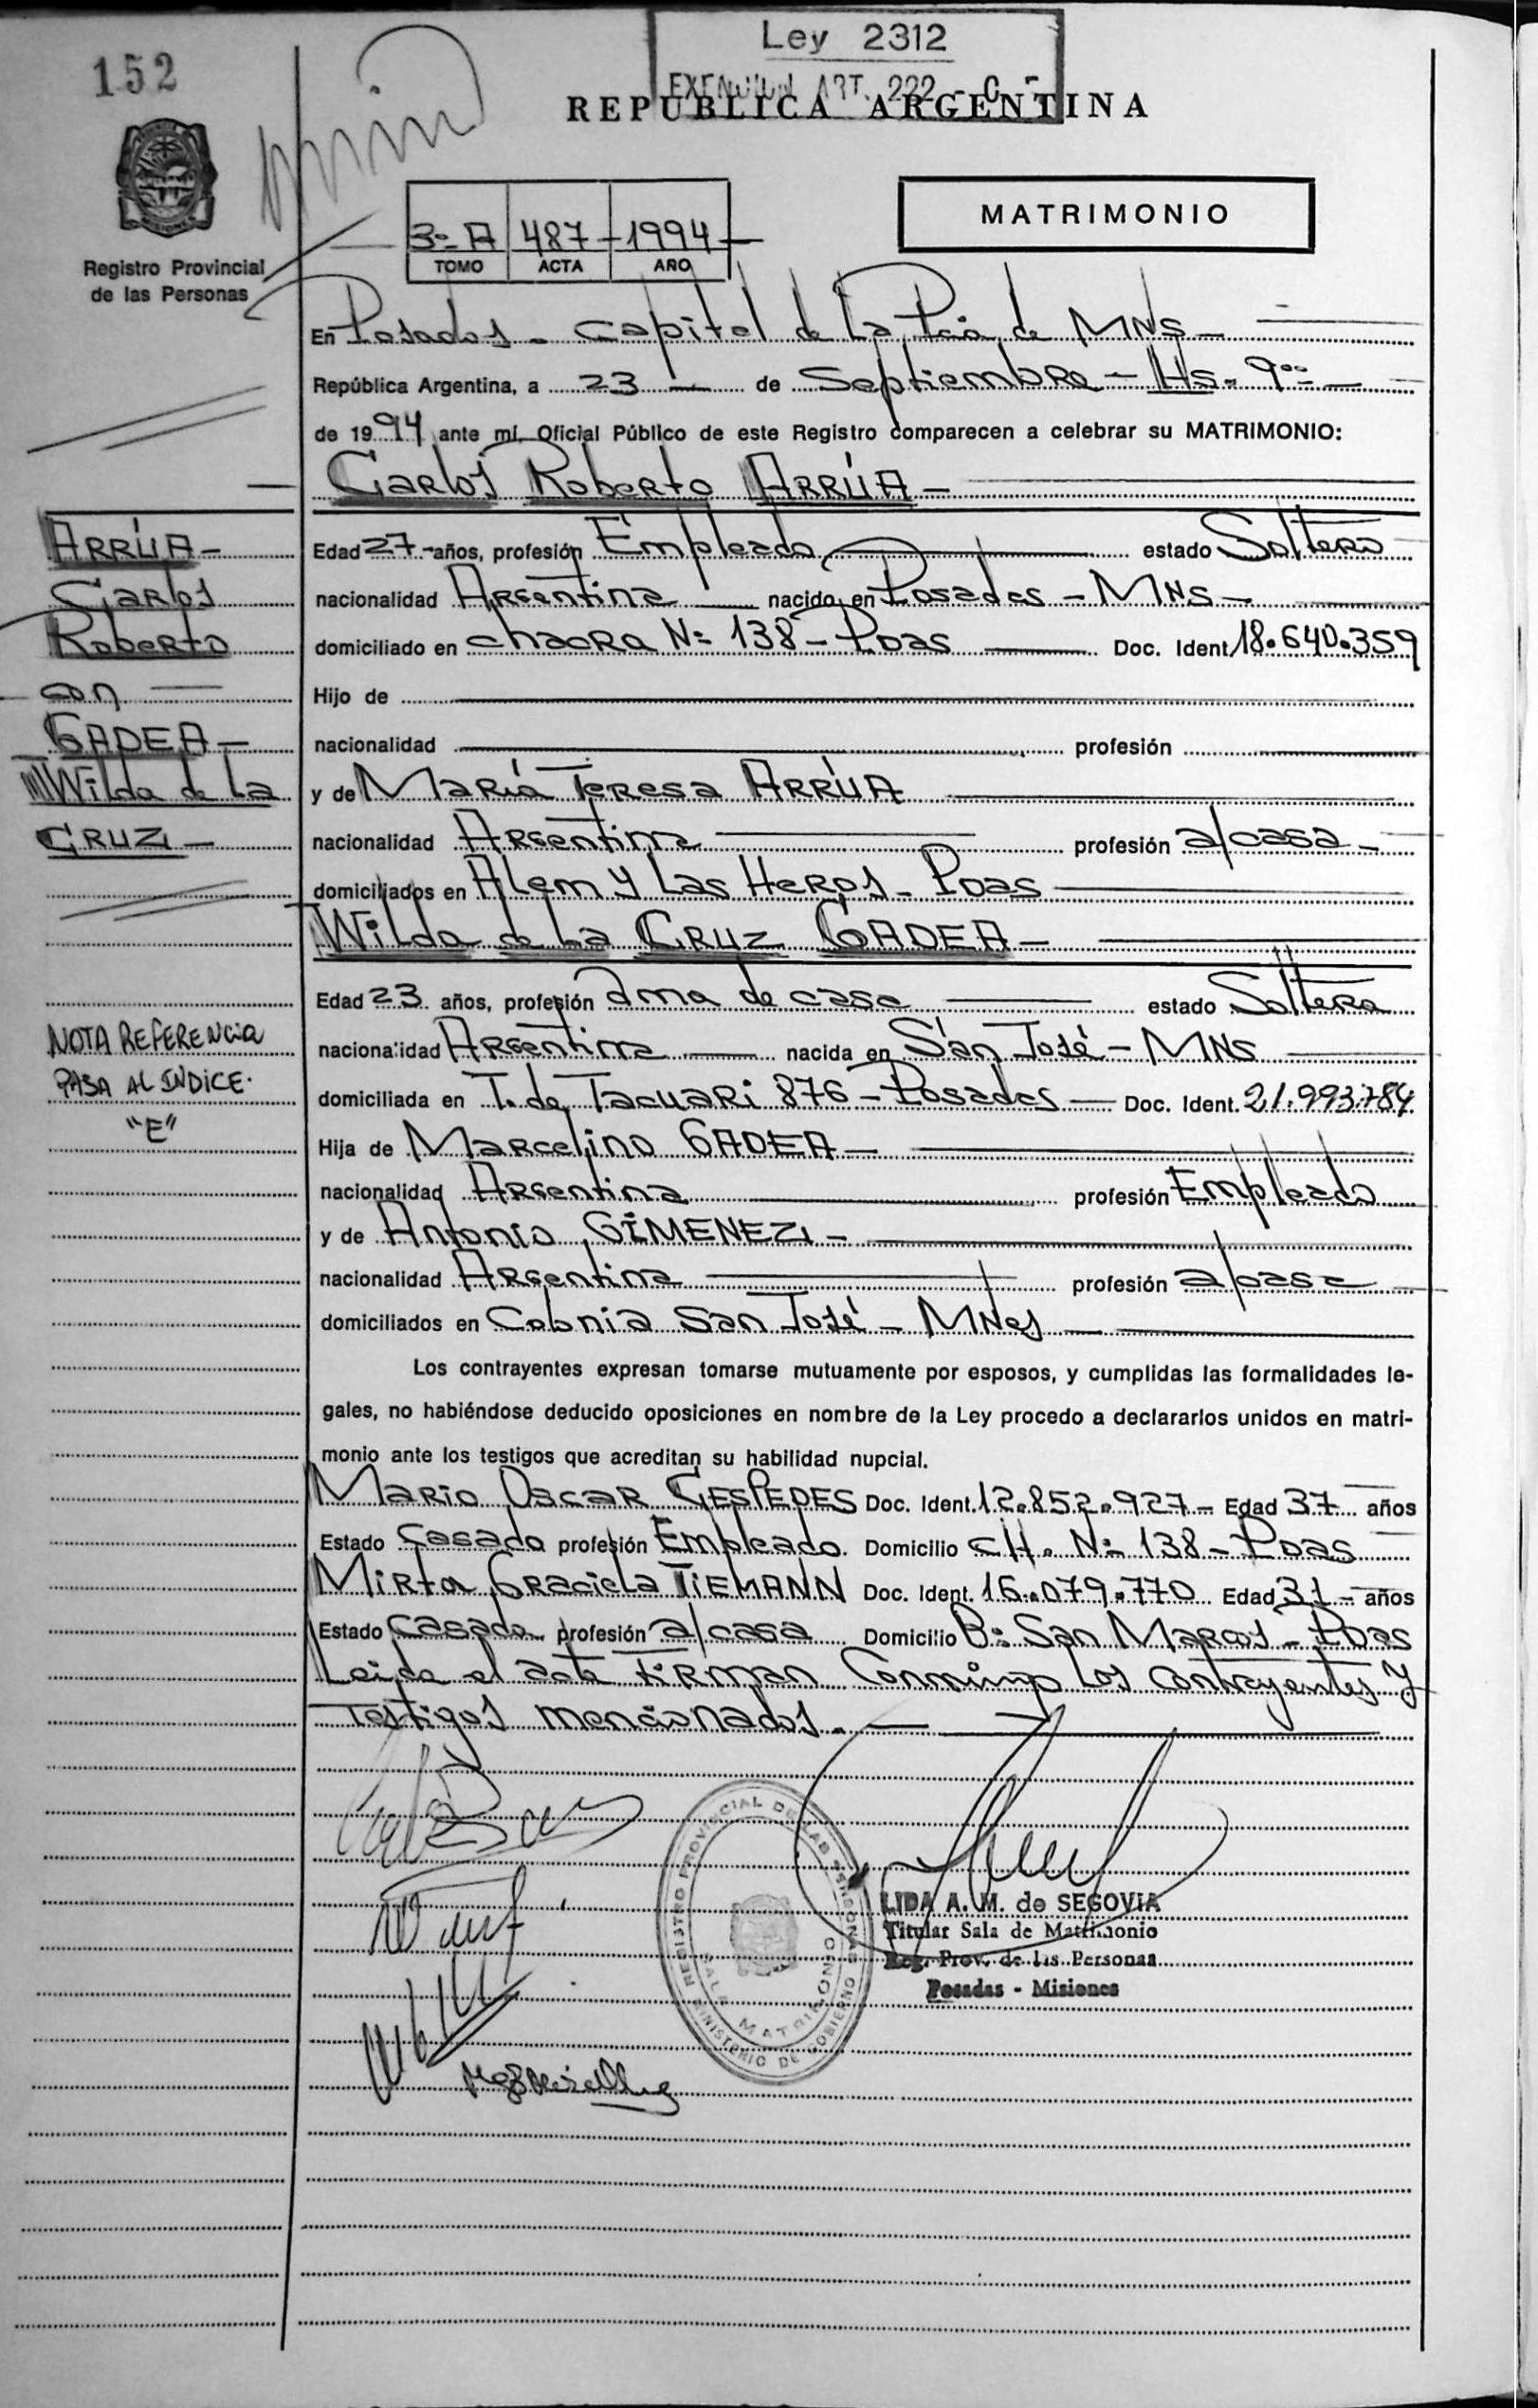 152
Ley 2312
EXENCION ART. 222 - C.F.
REPUBLICA ARGENTINA
Registro Provincial
de las Personas
3º-A 487 1994
TOMO ACTA AÑO
MATRIMONIO
En Posadas - Capital de La Pcia de MNS -
República Argentina, a 23 de Septiembre - Hs. 9ºº -
de 1994 ante mí, Oficial Público de este Registro comparecen a celebrar su MATRIMONIO:
Carlos Roberto ARRÚA -
ARRÚA -
Carlos
Roberto
con
GADEA -
Wilda de La
CRUZ -
Edad 27 - años, profesión Empleado estado Soltero
nacionalidad Argentina nacido en Posadas - MNS -
domiciliado en chacra Nº 138 - Pdas Doc. Ident. 18.640.359
Hijo de
nacionalidad profesión
y de María Teresa ARRÚA
nacionalidad Argentina profesión a/casa -
domiciliados en Alem y Las Heros - Pdas
Wilda de La CRUZ GADEA -
NOTA REFERENCIA
PASA AL INDICE.
"E"
Edad 23 años, profesión ama de casa estado Soltera
nacionalidad Argentina nacida en San José - MNS
domiciliada en T. de Tacuari 876 - Posadas Doc. Ident. 21.993.784
Hija de Marcelino GADEA -
nacionalidad Argentina profesión Empleado
y de Antonia GIMENEZ -
nacionalidad Argentina profesión a/casa
domiciliados en Colonia San José - MNes
Los contrayentes expresan tomarse mutuamente por esposos, y cumplidas las formalidades le-
gales, no habiéndose deducido oposiciones en nombre de la Ley procedo a declararlos unidos en matri-
monio ante los testigos que acreditan su habilidad nupcial.
Mario Oscar CESPEDES Doc. Ident. 12.852.927 - Edad 37 años
Estado Casado profesión Empleado. Domicilio CH. Nº 138 - Pdas
Mirta Graciela TIEMANN Doc. Ident. 16.079.770 Edad 31 - años
Estado Casada profesión a/casa Domicilio Bº San Marcos - Pdas
Leida el acta firman Conmigo Los contrayentes y
Testigos mencionados. -
REGISTRO PROVINCIAL DE LAS PERSONAS
MINISTERIO DE GOBIERNO
SALA MATRIMONIO
LIDA A. M. de SEGOVIA
Titular Sala de Matrimonio
Reg. Prov. de las Personas
Posadas - Misiones